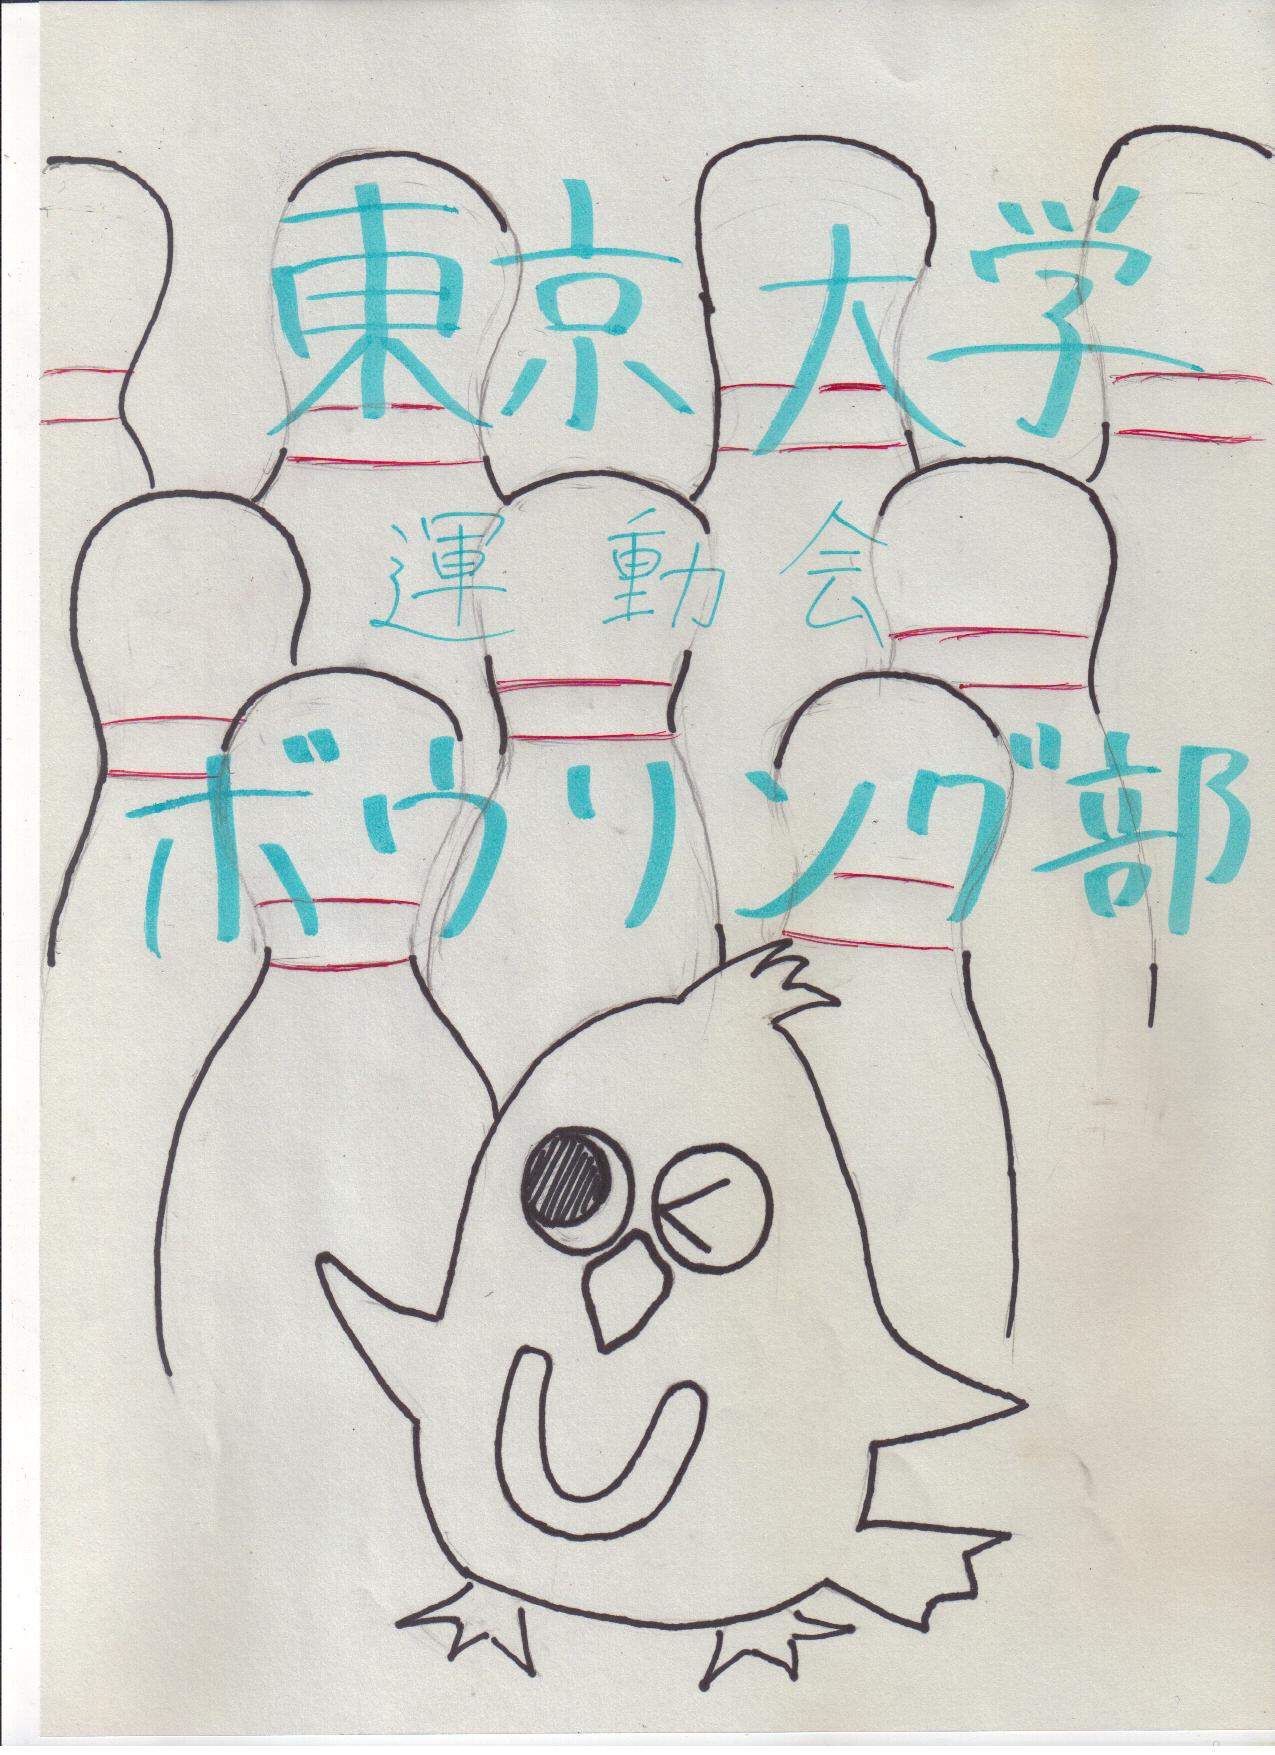 東京大学
運動会
ボウリング部